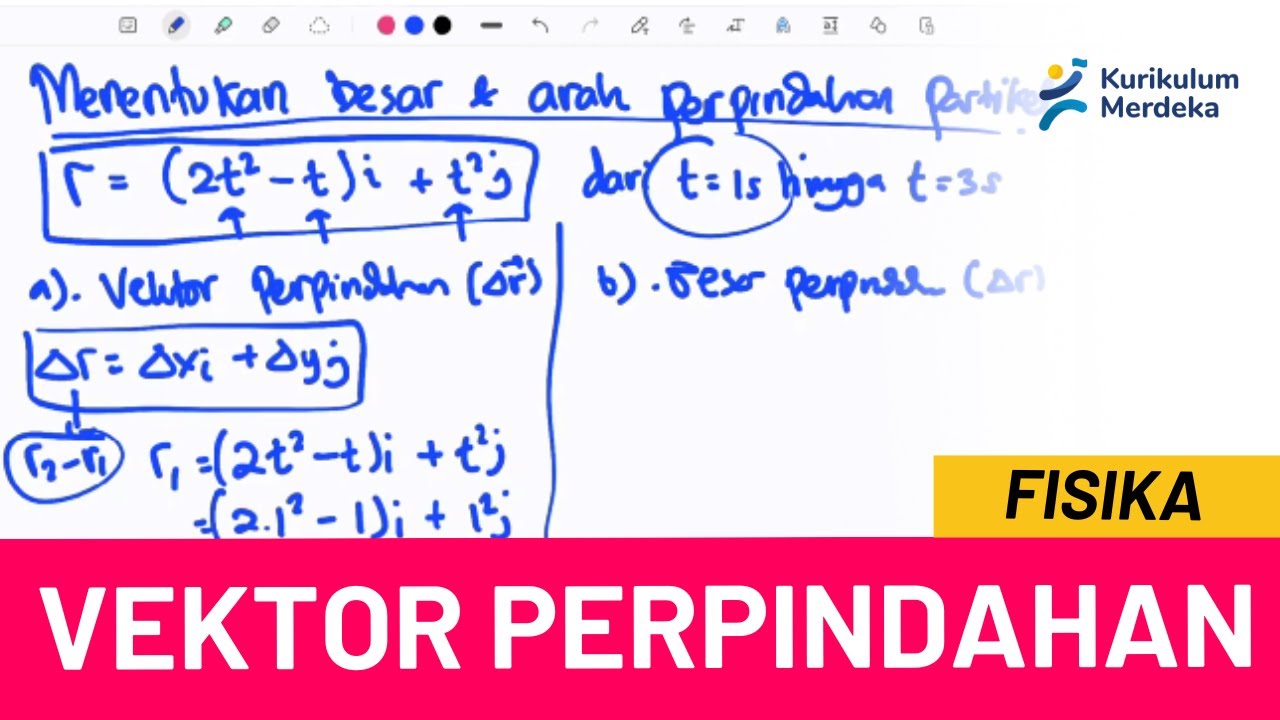 Menentukan Besar & arah perpindahan Partike
Kurikulum
Merdeka
r = (2t² - t)i + t²j
dari t = 1s hingga t = 3s
a). Vektor Perpindahan (Δr⃗)
b). Besar perpindah (Δr)
Δr = Δxi + Δyj
r₂-r₁
r₁ = (2t² - t)i + t²j
= (2.1² - 1)i + 1²j
FISIKA
VEKTOR PERPINDAHAN